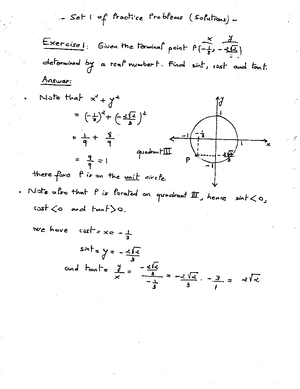 - Set 1 of Practice Problems (Solutions) -
x y
Exercise 1: Given the terminal point P(-1/3, -2√2/3)
determined by a real number t. Find sint, cost and tant.
Answer:
• Note that x² + y²
= (-1/3)² + (-2√2/3)²
= 1/9 + 8/9
= 9/9 = 1
therefore P is on the unit circle
y
1
-1 -1/3 1 x
quadrant III
P -2√2/3
-1
• Note also that P is located on quadrant III, hence sint<0,
cost<0 and tant>0.
We have cost = x = -1/3
sint = y = -2√2/3
and tant = y/x = (-2√2/3)/(-1/3) = -2√2/3 · -3/1 = 2√2